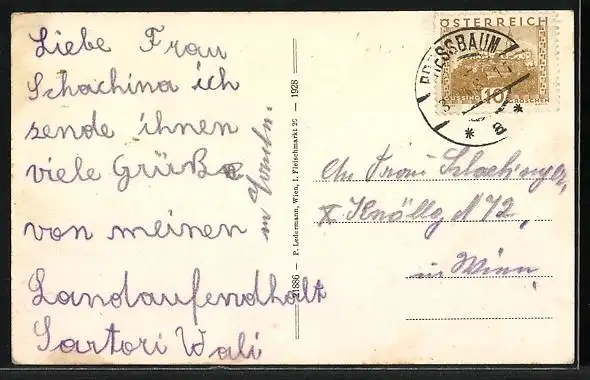 Liebe Frau
Schachina ich
sende ihnen
viele Grüße
von meinen
Landaufendhalt
Sartori Wali
21886 – P. Ledermann, Wien, I. Fleischmarkt 20 – 1928
ÖSTERREICH
10
GROSCHEN
PRESSBAUM
An Frau
X Knöllg N 72,
in Wien